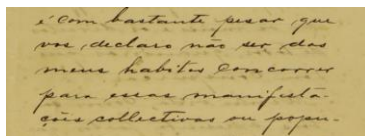 é com bastante pesar que
vos declaro não ser dos
meus habitos concorrer
para essas manifesta-
ções collectivas ou popu-